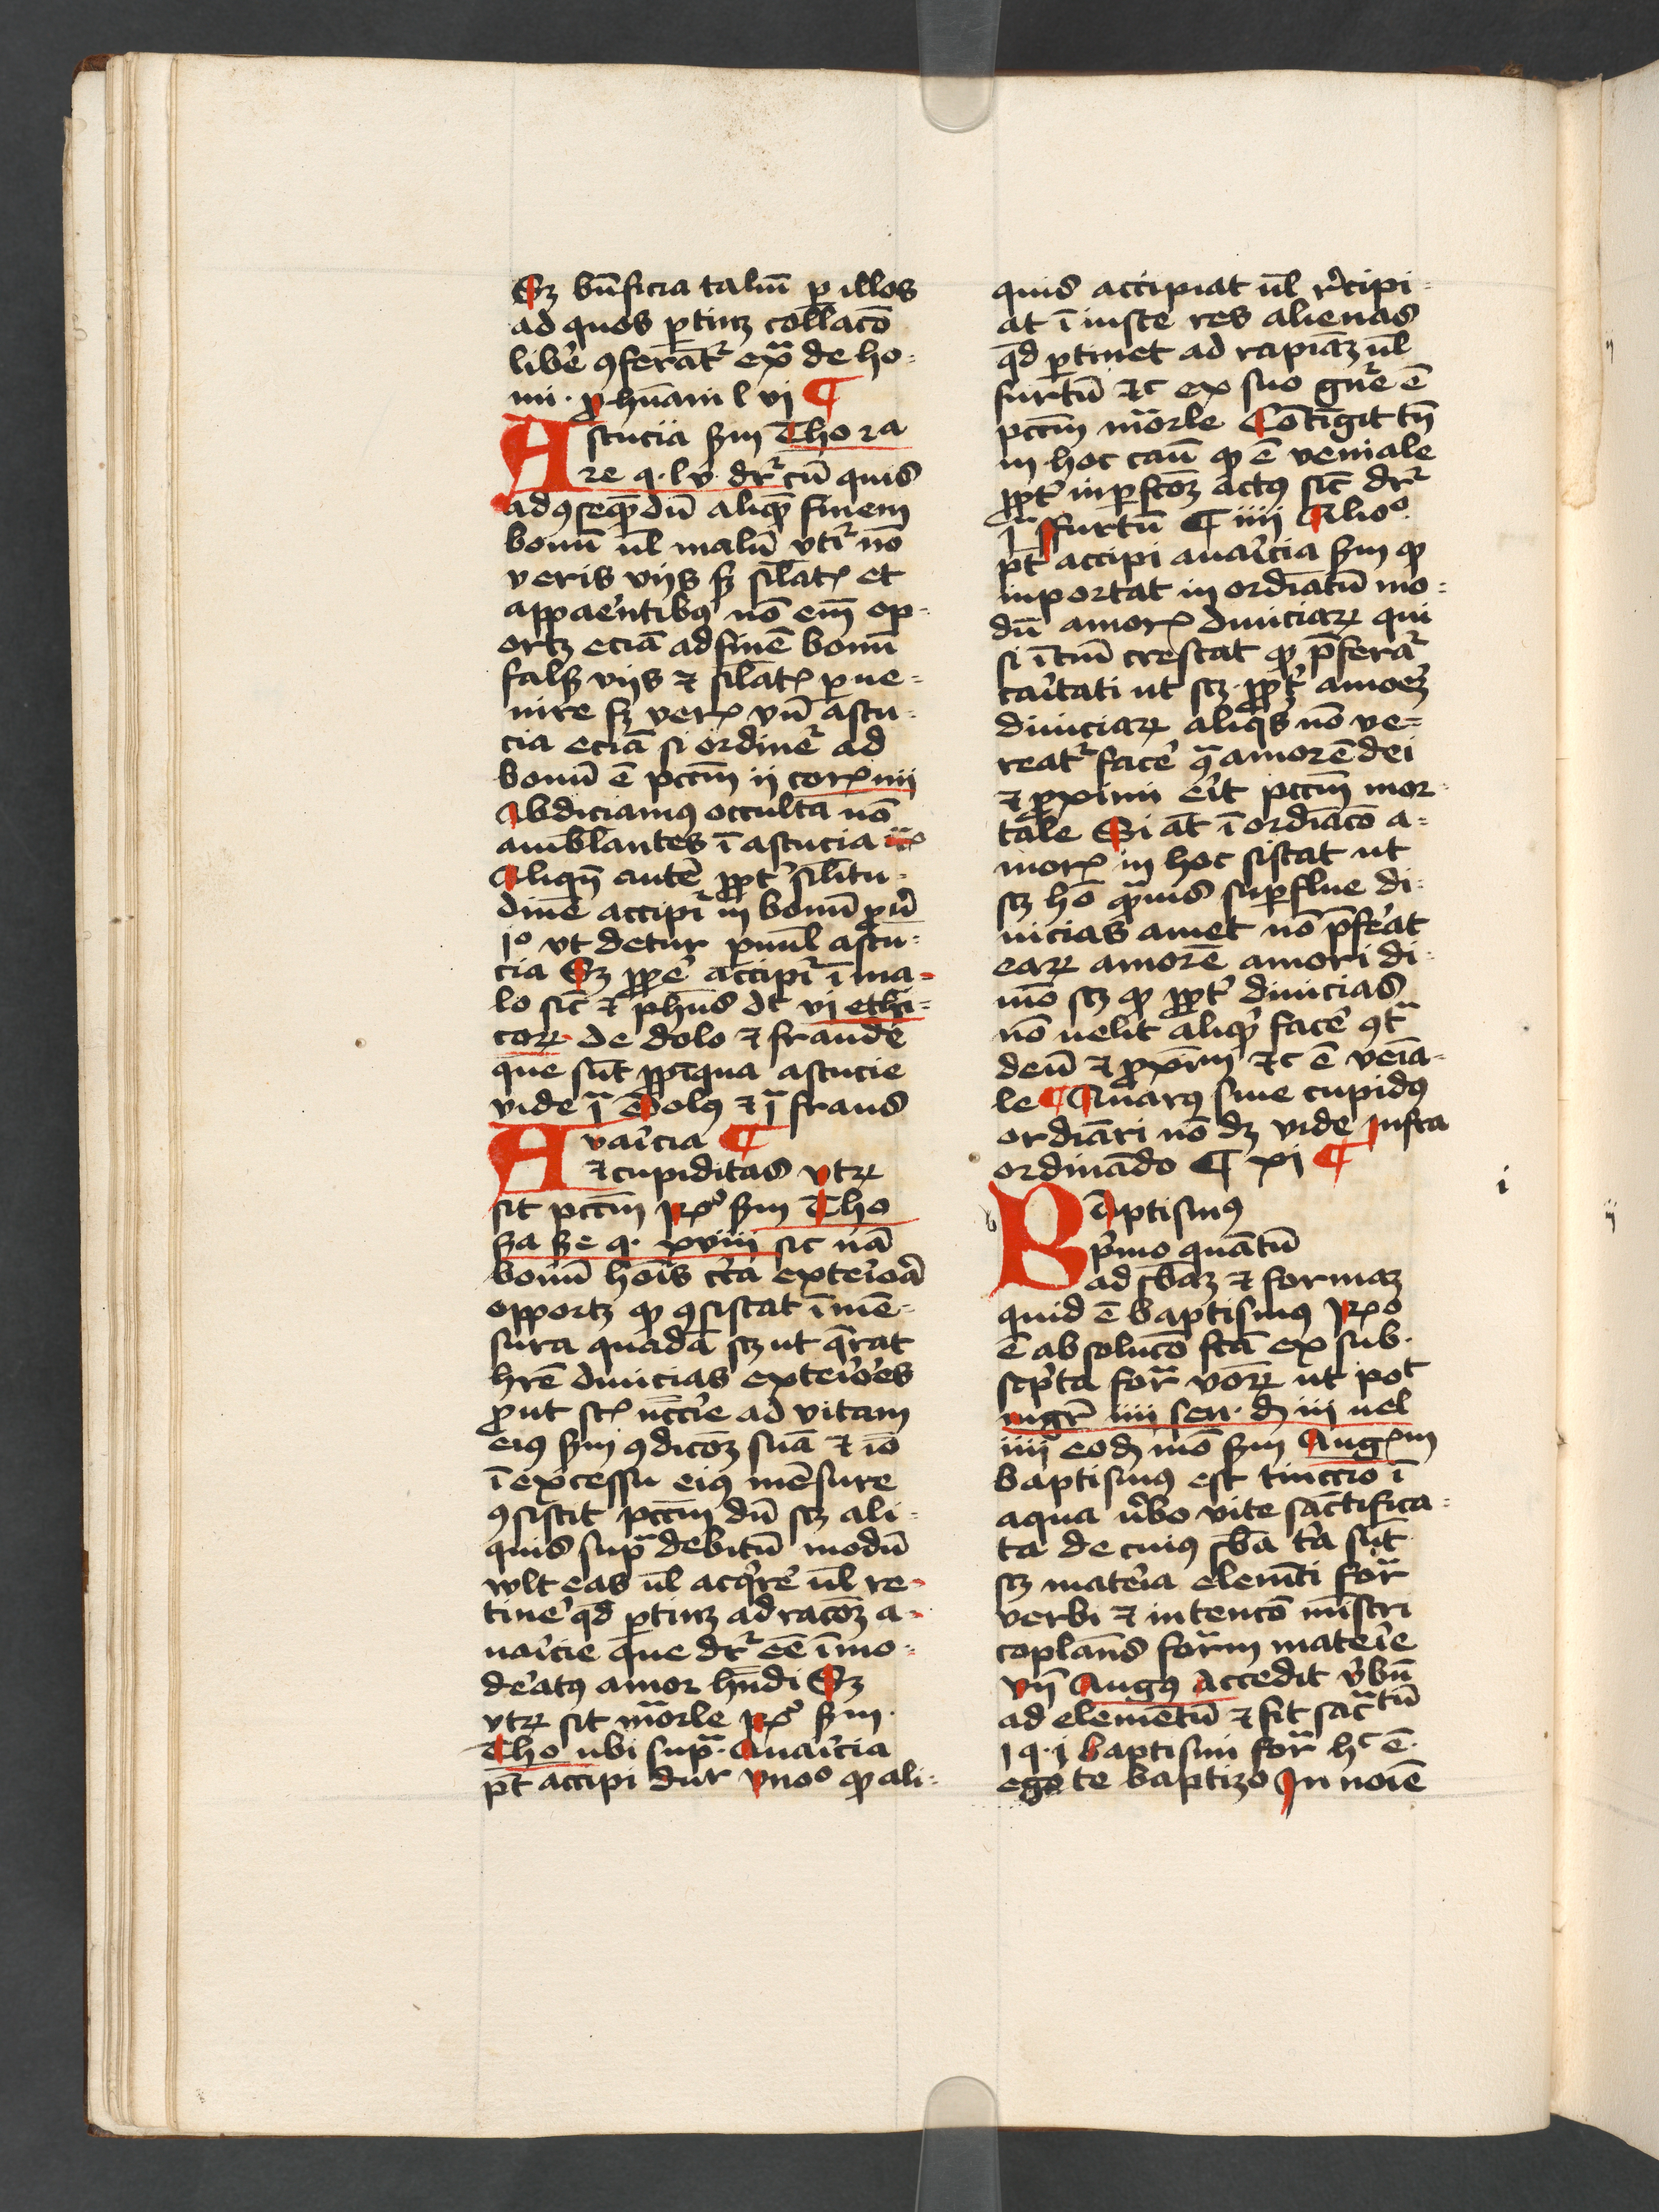 Sꝫ bn̄ficia taliū ꝑ illos
ad quos ꝑtinꝫ collacō
libe᷑ ꝯferāt᷑ ex̄ de ho-
mi. ꝓ hūani l vi ¶
Astucia scd̄m Tho 2a
2e q. lv. dr᷑ cū quis
ad ꝯseq̄ndū aliq̄ finem
bonū ul̄ malū vtit᷑ nō
veris viis sꝫ sil̄atis et
apparentibꝰ nō em̄ op-
ortꝫ eciā ad finē bonū
falsis viis ⁊ sil̄atis ꝑue-
nire sꝫ veris vn̄ astu-
cia eciā si ordinet᷑ ad
bonū ē pcc̄m ii cor̄ iiii
Abdicamꝰ occulta nō
ambl̄antes ī astucia
Aliqn̄ autē ꝓpt᷑ sil̄itu-
dinē accipit᷑ in bonū ꝓu᷑
1º vt detur ꝑuul̄ astu-
cia Sꝫ ꝓp̄e accipit᷑ ī ma-
lo sic̄ ⁊ ph̄us dt vi ethi-
coꝝ de dolo ⁊ fraude
que sūt ꝓpīqua astucie
vide ī Dolꝰ ⁊ ī fraus
Auaricia ¶
⁊ cupiditas vtꝝ
sit pcc̄m Rº scd̄m Tho
2a 2e q. xviii sic nā
bonū hoīs c᷑ca exterioā
opportꝫ ꝙ ꝯsistat ī mē-
sura quadā scꝫ ut q̄rat
hr̄e diuicias exterio᷑es
ꝓut sūt nc̄cie ad vitam
eiꝰ scd̄m ꝯdicōꝫ suā ⁊ iō
ī excessu eiꝰ mēsure
ꝯsistit pcc̄m dū scꝫ ali-
quis sup̄ debitū modū
vult eas ul̄ acq̄re᷑ ul̄ re-
tine᷑ qd̄ ꝑtinꝫ ad racōꝫ a-
uaricie que dr᷑ eē īmo-
de᷑atꝰ amor hn̄di Sꝫ
vtꝝ sit mōrle Rº scd̄m
Tho ubi sup̄. Auaricia
pt̄ accipi dur vnoº ꝙ ali-
quis accipiat ul̄ r᷑cipi-
at ī iuste res alienas
qd̄ ꝑtinet ad rapiāꝫ ul̄
furtū ⁊c ex suo gn̄e ē
pcc̄m mōrle Cōtigit tn̄
in hoc cāu ꝙ ē veniale
ꝓpt᷑ inꝑfc̄oꝫ actꝰ sic̄ dr᷑
ī furtū ¶ iiii Alioº
pt̄ accipi auaricia scd̄m ꝙ
inportat in ordīatū mo-
dū amoris diuiciaꝝ qui
si ītm̄ crescat ꝙ p̄ferat᷑
caritati ut scꝫ ꝓpt᷑ amoeꝫ
diuiciaꝝ aliq̄s nō ve-
reat᷑ face᷑ ꝯ̄ amorē dei
⁊ ꝓximi erit pcc̄m mor-
tale Si at̄ ī ordīacō a-
moris in hoc sistat ut
scꝫ hō q̄uis suꝑflue di-
uicias amet nō p̄ferat
eaꝝ amorē amori di-
uīo scꝫ ꝙ ꝓpt᷑ diuicias
nō uelit aliq̄ face᷑ ꝯt̄
deū ⁊ ꝓxīm ⁊c ē venia-
le ¶ Auarꝰ siue cupidꝰ
ordīari nō dꝫ vide Infra
ordinādo ¶ xi ¶
Baptismꝰ
p᷑mo quātū
ad sb̄aꝫ ⁊ formaꝫ
quid ē baptismꝰ Rº
ē absolucō fc̄a ex sub-
sc᷑pta for̄ voꝝ ut pot
mgr̄ iiii sen. d̄ iii uel
iiii eod̄ mō scd̄m Augꝰm
baptismꝰ est tinccio ī
aqua v᷑bo vite sanctifica-
ta de cuiꝰ sb̄a t᷑a sūt
scꝫ materia elem̄ti for̄
verbi ⁊ intencō mīstri
coplan̄s form̄ materie
vn̄ Augꝰ Accedit v᷑bū
ad elemētū ⁊ fit sac̄tū
1 q. i baptismi for̄ hᶜ ē.
ego te baptizo In noīe
i